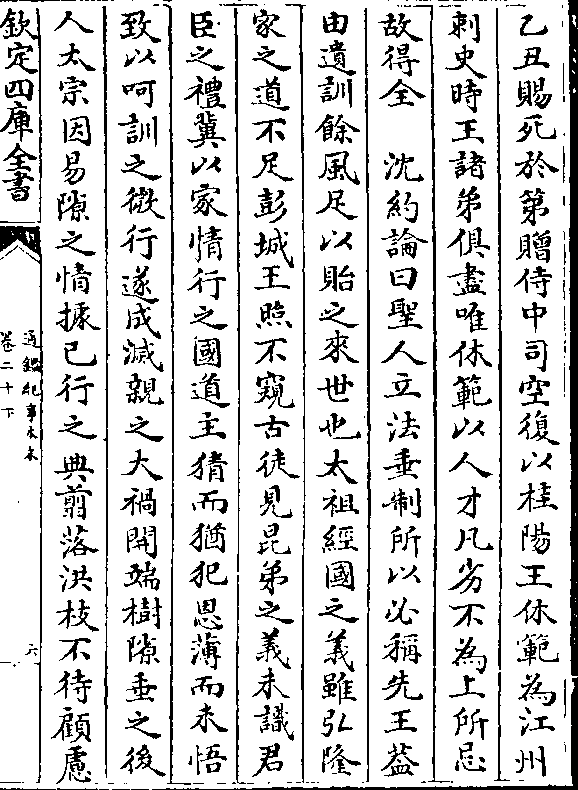 乙丑賜死於第贈侍中司空復以桂陽王休範為江州
刺史時王諸弟俱盡唯休範以人才凡劣不為上所忌
故得全　沈約論曰聖人立法垂制所以必稱先王葢
由遺訓餘風足以貽之來世也太祖經國之義雖弘隆
家之道不足彭城王照不窺古徒見昆弟之義未識君
臣之禮冀以家情行之國道主猜而猶犯恩薄而未悟
致以呵訓之微行遂成滅親之大禍開端樹隙垂之後
人太宗因易隙之情據已行之典剪落洪枝不待顧慮
欽定四庫全書
通鑑紀事本末
卷二十下
六